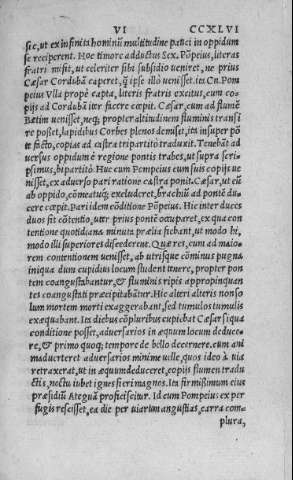 VI CCXLVI
sse, ut ex infinita hominũ multitudine pauci in oppidum
se reciperent. Hoc timore adductus Sex. Põpeius, literas
fratri misit, ut celeriter sibi subsidio ueniret, ne prius
Cæsar Cordubã caperet, q̃ ipse illò uenisset. itẽ Cn. Pom
peius Vlla propè capta, literis fratris excitus, cum co-
pijs ad Cordubã iter facere cœpit. Cæsar, cum ad flumẽ
Bætim uenisset, neq; propter altitudinem fluminis transi
re posset, lapidibus Corbes plenos demisit, ita insuper põ
te facto, copias ad castra tripartitò traduxit. Tenebãt ad
uersus oppidum è regione pontis trabes, ut supra scri-
psimus, bipartitò. Huc cum Pompeius cum suis copijs ue
nisset, ex aduerso pari ratione castra ponit. Cæsar, ut eũ
ab oppido, cõmeatuq; excluderet, brachiũ ad pontẽ du-
cere cœpit. Pari idem cõditione Põpeius. Hic inter duces
duos fit cõtentio, uter prius pontẽ occuparet, ex qua con
tentione quotidiana minuta prælia fiebant, ut modo hi,
modo illi superiores discederent. Quæ res, cum ad maio-
rem contentionem uenisset, ab utrisque cõminus pugna
iniqua dum cupidius locum student tenere, propter pon
tem coangustabantur, & fluminis ripis appropinquan
tes coangustati præcipitabãtur. Hic alteri alteris non so
lum mortem morti exaggerabant, sed tumulos tumulis
exæquabant. Ita diebus cõpluribus cupiebat Cæsar si qua
conditione posset, aduersarios in æquum locum deduce-
re, & primo quoq; tempore de bello decernere. cum ani
maduerteret aduersarios minime uelle, quos ideo à uia
retraxerat, ut in æquum deduceret, copijs flumen tradu
ctis, noctu iubet ignes fieri magnos. Ita firmissimum eius
præsidiũ Ateguã proficiscitur. Id cum Pompeius ex per
fugis rescisset, ea die per uiarum angustias, carra com-
plura,